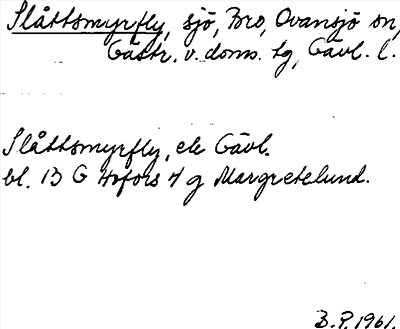 Slåttsmyrfly, sjö, Bro, Ovansjö sn,
Gästr. v. doms. tg, Gävl. l.
Slåttsmyrfly, ek Gävl.
bl. 13 G Hofors 7 g Margretelund.
B.P. 1961.